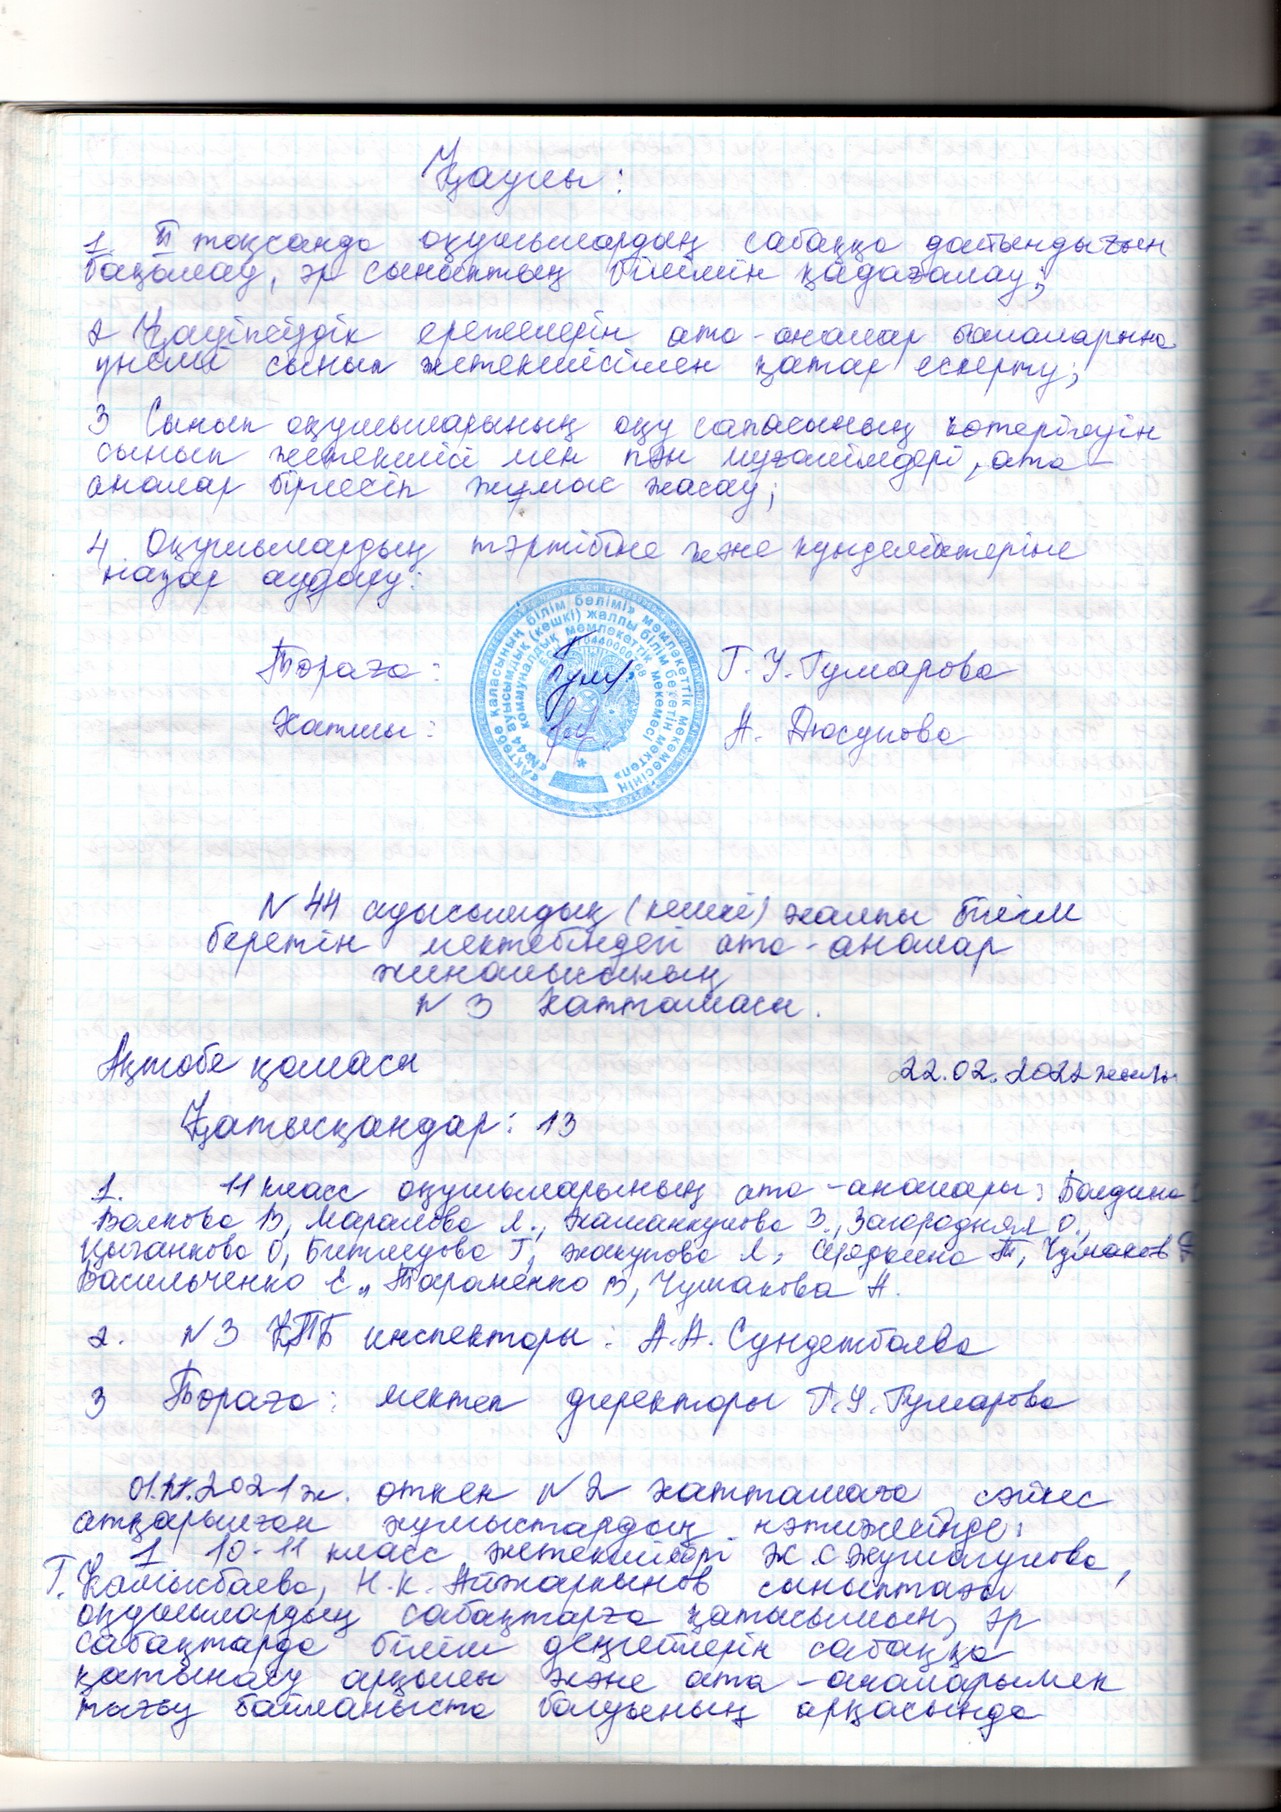 Қаулы:
1. II тоқсанда оқушылардың сабаққа дайындығын
бақылау, әр сыныптың білімін қадағалау;
2 Қауіпсіздік ережелерін ата-аналар балаларына
үнемі сынып жетекшісімен қатар ескерту;
3 Сынып оқушыларының оқу сапасының көтерілуін
сынып жетекшісі мен пән мұғалімдері, ата-
аналар бірлесіп жұмыс жасау;
4 Оқушылардың тәртібіне және күнделіктеріне
назар аудару:
Төраға: Г.У.Гумарова
Хатшы: А. Дюсупова
«Ақтөбе қаласының білім бөлімі» мемлекеттік мекемесінің
«№44 ауысымдық (кешкі) жалпы білім беретін мектеп»
коммуналдық мемлекеттік мекемесі
N 44 ауысымдық (кешкі) жалпы білім
беретін мектебіндегі ата-аналар
жиналысының
N 3 хаттамасы.
Ақтөбе қаласы 22.02.2022 жылы
Қатысқандар: 13
1. 11 класс оқушыларының ата-аналары: Болдина
Волкова В, Маралова Л., Жаманкулова З., Загородняя О.,
Цыганкова О, Битлеуова Г, Жакупова Л, Середина Т, Чумаков
Васильченко Е., Тараненко В, Чумакова Н.
2. N 3 КТБ инспекторы: А.А. Сундетбаева
3 Төраға: мектеп директоры Г.У.Гумарова
2021ж. өткен N2 хаттамаға сәйкес
атқарылған жұмыстардың нәтижесінде:
1 10-11 класс жетекшілері Ж.С Жумагулова,
Г. Камысбаева, Н.К. Айжарыков сыныптағы
оқушылардың сабақтарға қатысымын, әр
сабақтарда білім деңгейлерін сабаққа
қатынасу арқылы және ата-аналарымен
тығыз байланыста болуының арқасында